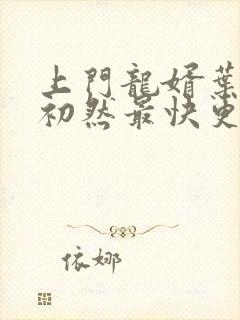 上門龍婿葉
初然最快更
依娜